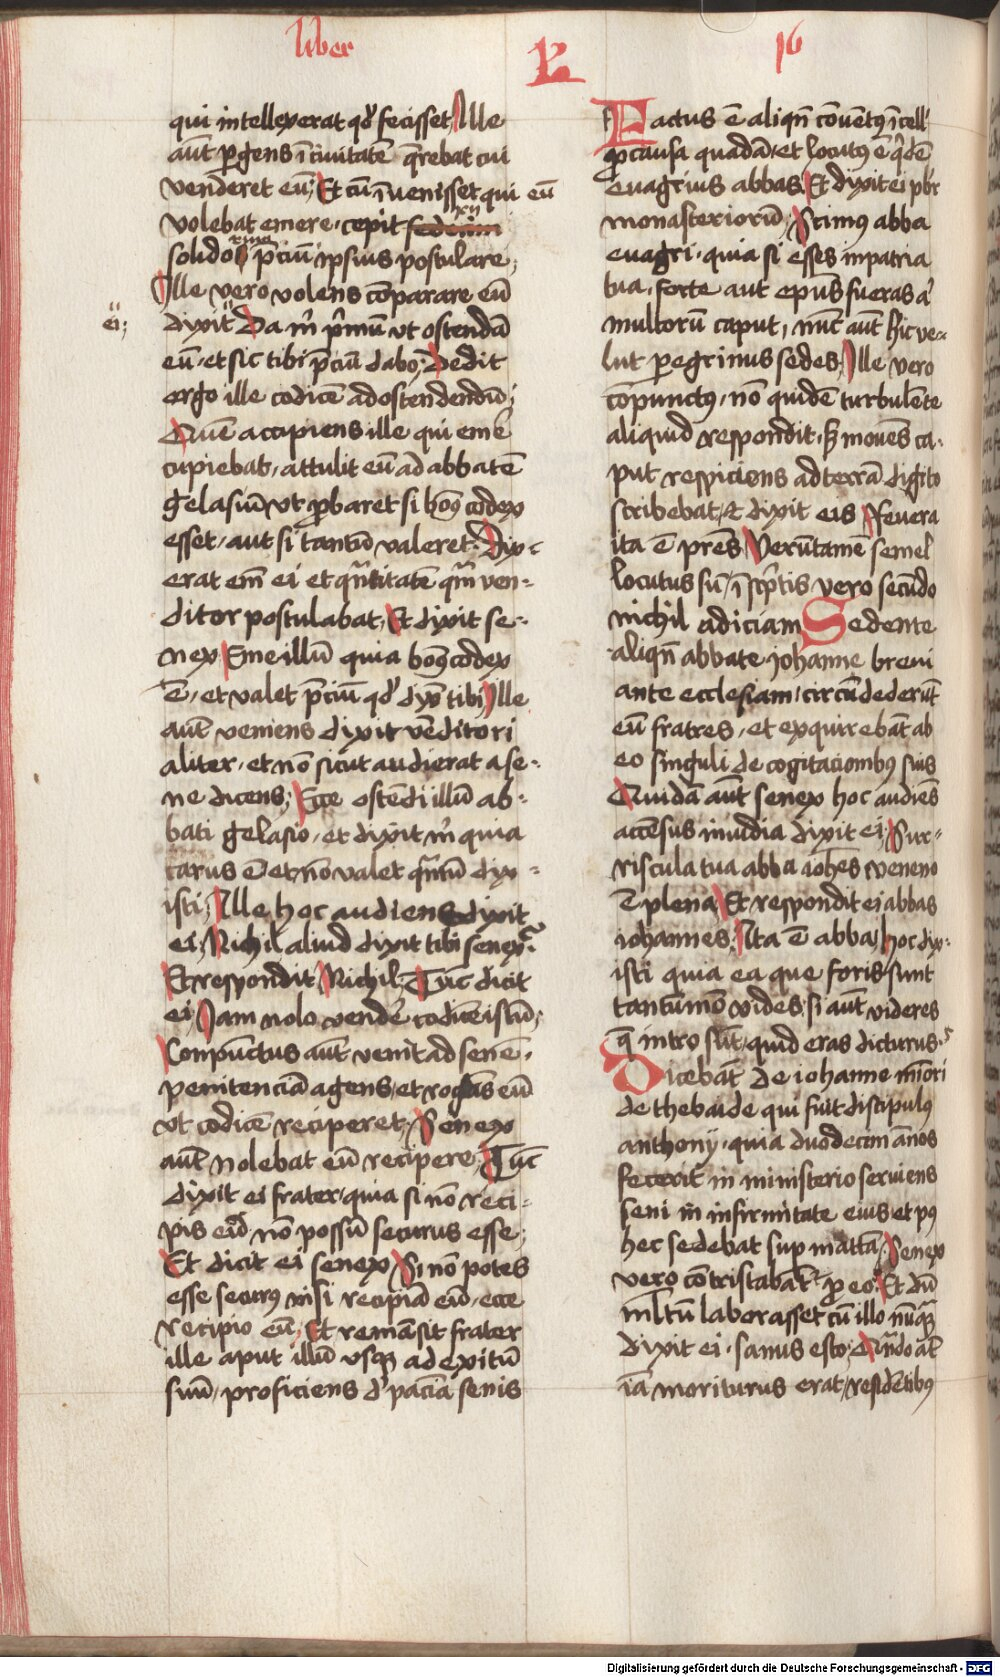 liber
R
16
qui intellexerat qd' fecisset Ille
aut̄ ꝑgens ī civitatē q̄rebat cui
venderet eū; Et cū īvenisset qui eū
volebat emere · cepit xvj
solidos p̄ciū ipsius postulare;
Ille vero volens cōparare eū
ei;
dixit Da m̄ p̄mū vt ostendā
eū · et sic tibi p̄ciū dabo; Dedit
ergo ille codicē ad ostendendū;
Quē accipiens ille qui emē
cupiebat, attulit eū ad abbatē
gelasiū vt ꝓbaret si bonꝰ codex
esset, aut si tantū valeret · Dix-
erat em̄ ei et qn̄titatē qm̄ ven-
ditor postulabat, Et dixit se-
nex Eme illū quia bonꝰ codex
ē, et valet p̄ciū qd' dix̄ tibi Ille
aut̄ veniens dixit vēditori
aliter, et nō sicut audierat a se-
ne dicens; Ecce ostēdi illū ab-
bati gelasio, et dixit m̄ quia
carus ē et nō valet qn̄tū dix-
isti; Ille hoc audiens dixit
ei; Nichil aliud dixit tibi senex?
Et respondit Nichil; Tūc dicit
ei; Jam nolo vendē codicē istū;
Conpūctus aut̄ venit ad senē ·
penitenciā agens, et rogās eū
vt codicē reciperet; Senex
aut̄ nolebat eū recipere; Tūc
dixit ei frater, quia si nō reci-
pis eū, nō possū securus esse;
Et dicit ei senex Si nō potes
esse securꝰ nisi recipiā eū, ecce
recipio eū; Et remāsit frater
ille aput illū vsqꝫ ad exitū
suū, proficiens d' paciā senis
Factus ē aliqn̄ cōvētꝰ ī cell'
ꝓ causa quadā, et locutꝰ ē q'dē
evagrius abbas Et dixit ei pb'r
monasteriorū; Scimꝰ abba
evagri · quia si esses in patria
tua, forte aut ep̄us fueras a'
multorū caput, nūc aut̄ hic ve-
lut peregrinus sedes; Ille vero
conpunctꝰ, nō quidē turbulēte
aliquid respondit, sꝫ movēs ca-
put respiciens ad terrā digito
scribebat, & dixit eis Revera
ita ē pr̄es Verūtamē semel
locutus sū, ī sc̄ptis vero secūdo
nichil adiciam Sedente
aliqn̄ abbate johanne brevi
ante ecclesiam, circūdederūt
eū fratres, et exquirebāt ab
eo singuli de cogitacionibꝰ suis
Quidā aūt senex hoc audiēs
accēsus invidia dixit ei; Sur-
riscula tua abba ioh̄es veneno
ē plena; Et respondit ei abbas
iohannes; Ita ē abba, hoc dix-
isti quia ea que foris sunt
tantūmō vides, si aut̄ videres
q̄ intro sūt, quid eras dicturus?
Dicebāt de iohanne mīori
de thebaide qui fuit discipulꝰ
anthonij · quia duodecim ānos
fecerit in ministerio serviens
seni in infirmitate eius et pꝰ
hec sedebat sup mattā; Senex
vero cōtristabat' ꝓ eo; Et dū
ml̄tū laborasset cū illo nūqꝫ
dixit ei · sanus esto; Qn̄do at̄
iā moriturus erat, residētibꝰ
Digitalisierung gefördert durch die Deutsche Forschungsgemeinschaft - DFG